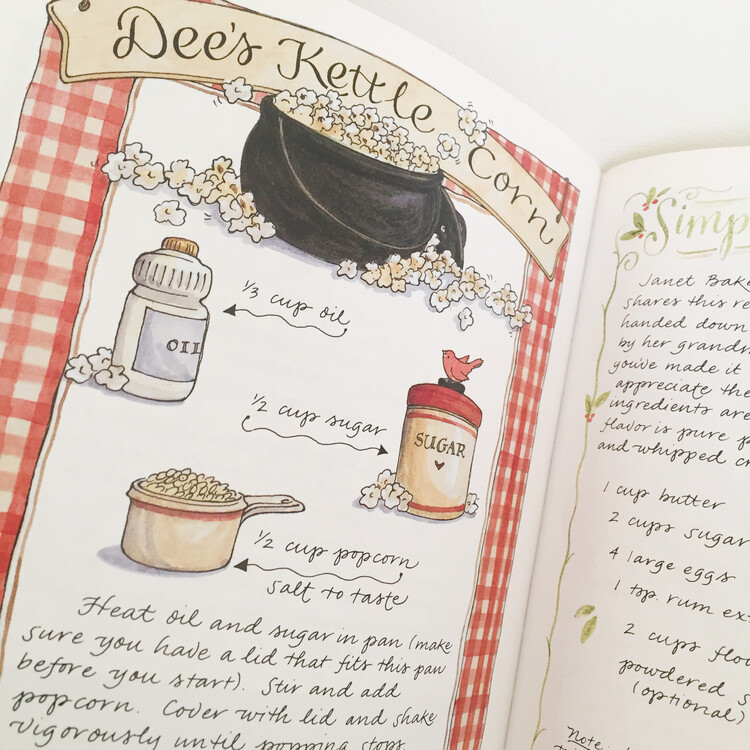 Dee's Kettle Corn
1/3 cup oil
OIL
1/2 cup sugar
SUGAR
1/2 cup popcorn
salt to taste
Heat oil and sugar in pan (make
sure you have a lid that fits this pan
before you start). Stir and add
popcorn. Cover with lid and shake
vigorously until popping stops.
Janet
shares this
handed down
by her
you've made it
appreciate
ingredients are
flavor is pure
and whipped
1 cup butter
2 cups sugar
4 large eggs
1 tsp. rum
2 cups
powdered
(optional)
Note